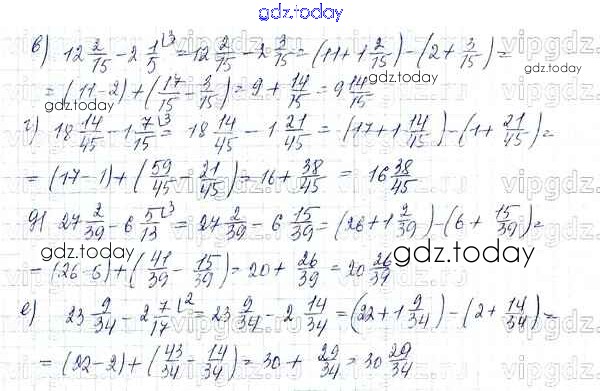 gdz.today
в) 12 2/15 - 2 1/5⌊3 = 12 2/15 - 2 3/15 = (11 + 1 2/15) - (2 + 3/15) =
= (11 - 2) + (17/15 - 3/15) = 9 + 14/15 = 9 14/15
gdz.today
г) 18 14/45 - 1 7/15⌊3 = 18 14/45 - 1 21/45 = (17 + 1 14/45) - (1 + 21/45) =
= (17 - 1) + (59/45 - 21/45) = 16 + 38/45 = 16 38/45
д) 27 2/39 - 6 5/13⌊3 = 27 2/39 - 6 15/39 = (26 + 1 2/39) - (6 + 15/39) =
gdz.today
= (26 - 6) + (41/39 - 15/39) = 20 + 26/39 = 20 26/39
gdz.today
е) 23 9/34 - 2 7/17⌊2 = 23 9/34 - 2 14/34 = (22 + 1 9/34) - (2 + 14/34) =
= (22 - 2) + (43/34 - 14/34) = 30 + 29/34 = 30 29/34